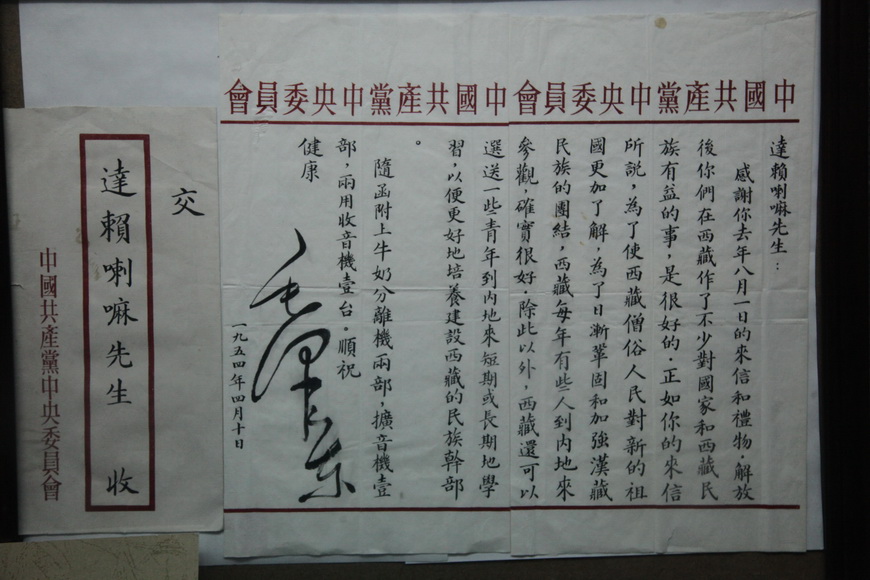 中國共產黨中央委員會
中國共產黨中央委員會
達賴喇嘛先生：
感謝你去年八月一日的來信和禮物．解放
後你們在西藏作了不少對國家和西藏民
族有益的事，是很好的．正如你的來信
所說，為了使西藏僧俗人民對新的祖
國更加了解，為了日漸鞏固和加強漢藏
民族的團結，西藏每年有些人到內地來
參觀，確實很好．除此以外，西藏還可以
選送一些青年到內地來短期或長期地學
習，以便更好地培養建設西藏的民族幹部
。
隨函附上牛奶分離機兩部，擴音機壹
部，兩用收音機壹台．順祝
健康
毛澤東
一九五四年四月十日
交
達賴喇嘛先生 收
中國共產黨中央委員會